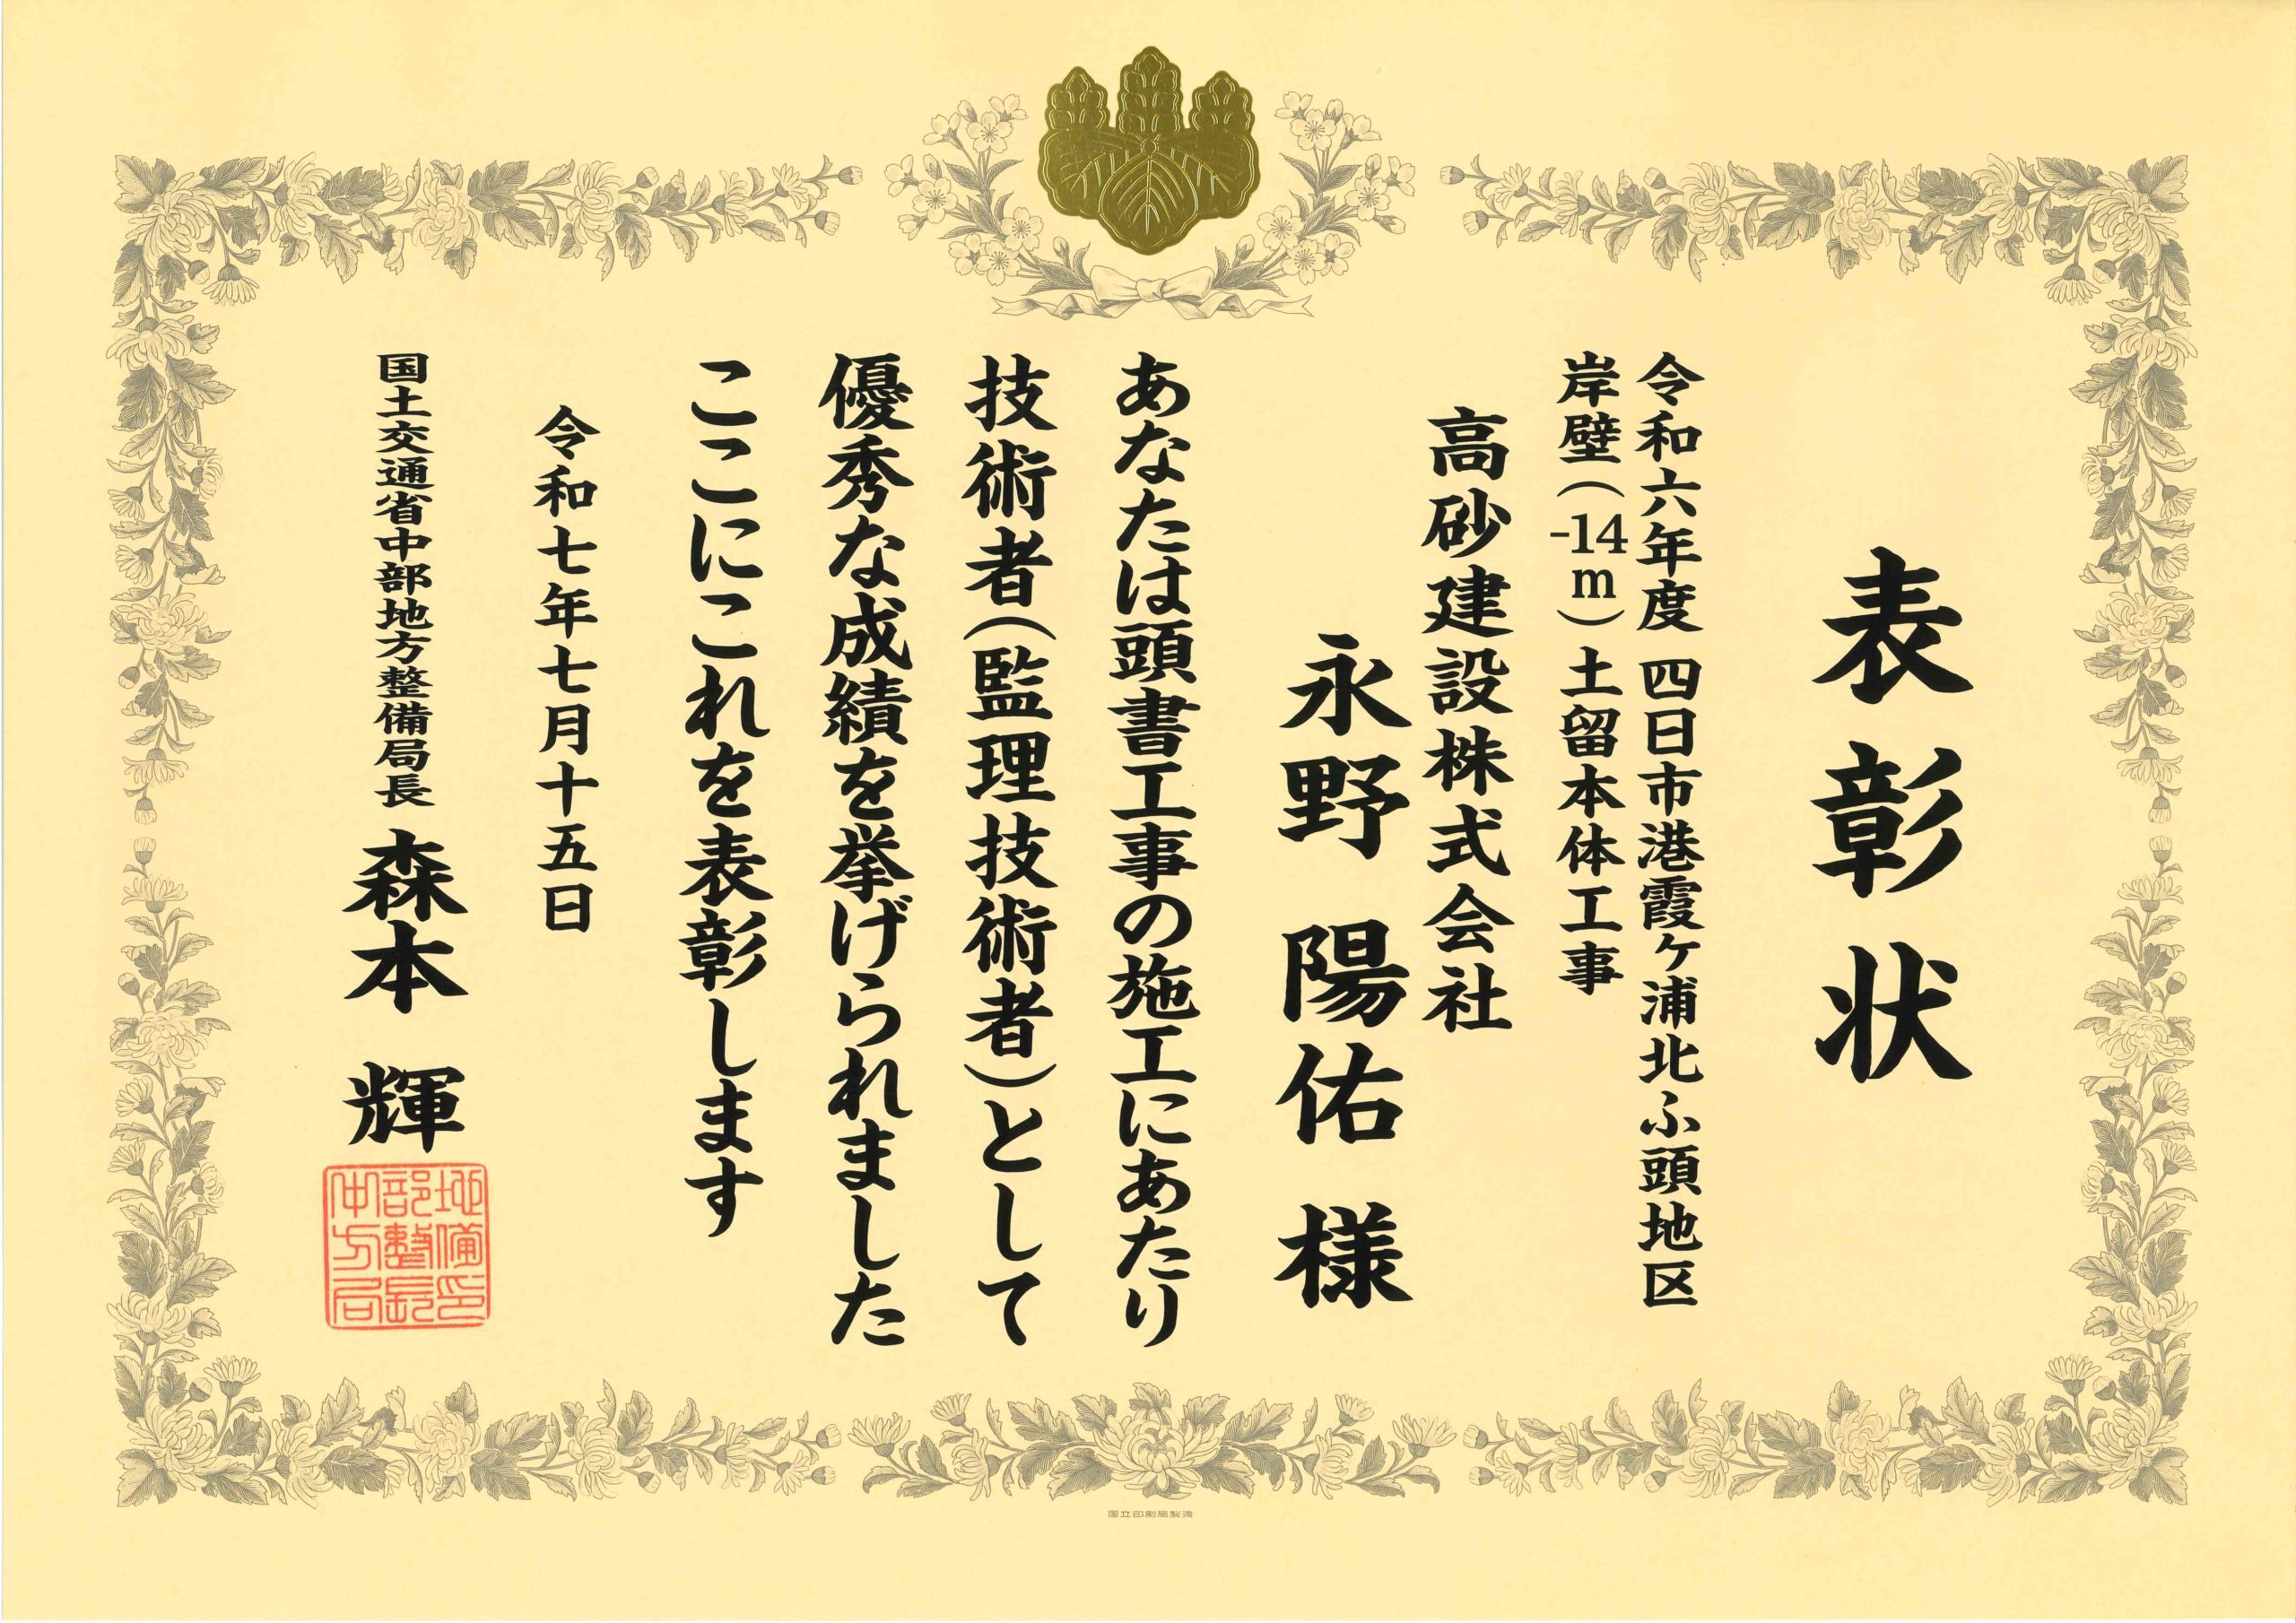 表彰状
令和六年度 四日市港霞ヶ浦北ふ頭地区
岸壁(-14m) 土留本体工事
高砂建設株式会社
永野 陽佑 様
あなたは頭書工事の施工にあたり
技術者(監理技術者)として
優秀な成績を挙げられました
ここにこれを表彰します
令和七年七月十五日
国土交通省中部地方整備局長 森本 輝
中部地
方整備
局長印
国立印刷局製造